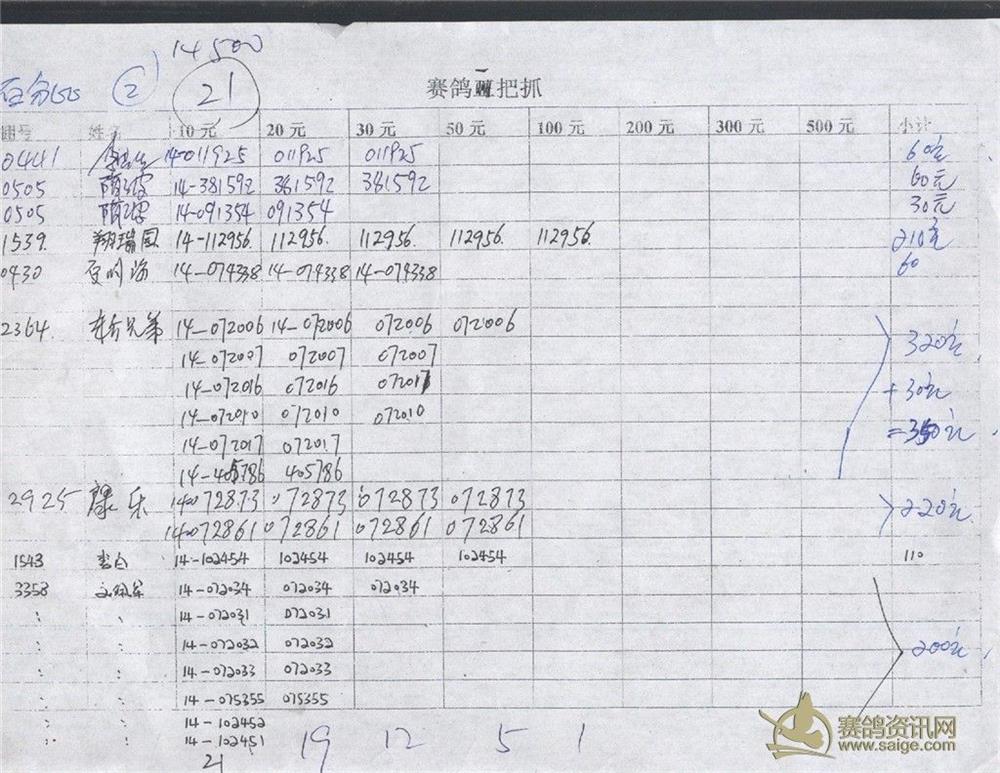 14500
百分55 ② 21 赛鸽一把抓
棚号 姓名 10元 20元 30元 50元 100元 200元 300元 500元 小计
0441 14-011925 011925 011925 60元
0505 14-381592 381592 381592 60元
0505 14-091354 091354 30元
1539. 翔瑞园 14-112956. 112956. 112956. 112956. 112956. 210元
0430 14-074338 14-074338 14-074338 60
2364. 兄弟 14-072006 14-072006 072006 072006 320元
14-072007 072007 072007
14-072016 072016 072017 +30元
14-072010 072010 072010 =350元
14-072017 072017
14-405786 405786
2925 康乐 14-072873 072873 072873 072873 220元
14-072861 072861 072861 072861
1543 李白 14-102454 102454 102454 102454 110
3358 14-072034 072034 072034
14-072031 072031
14-072032 072032 200元
14-072033 072033
14-075355 075355
14-102452
14-102451
21 19 12 5 1
赛鸽资讯网
www.saige.com